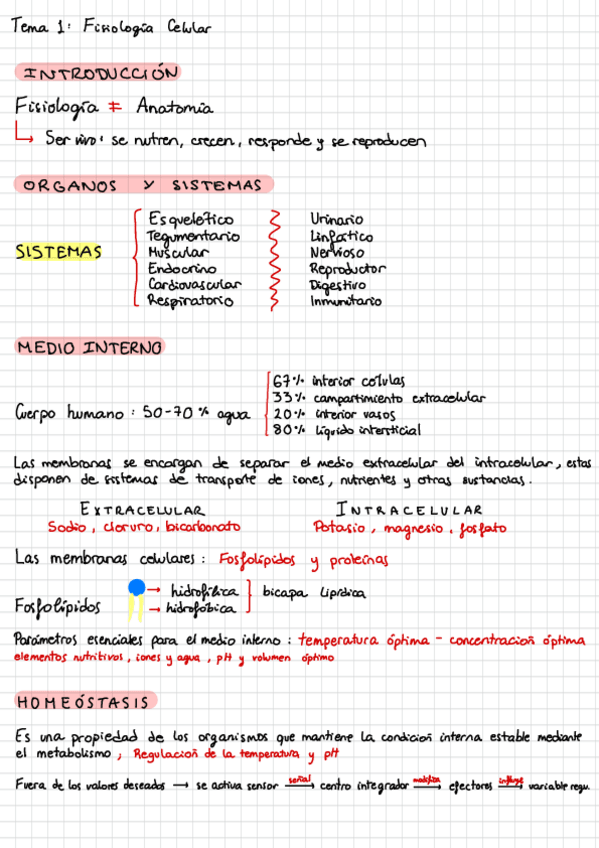 Tema 1: Fisiología Celular
INTRODUCCIÓN
Fisiología ≠ Anatomía
↳ Ser vivo: se nutren, crecen, responde y se reproducen
ORGANOS Y SISTEMAS
SISTEMAS
Esquelético Urinario
Tegumentario Linfático
Muscular Nervioso
Endocrino Reproductor
Cardiovascular Digestivo
Respiratorio Inmunitario
MEDIO INTERNO
Cuerpo humano: 50-70% agua
67% interior células
33% compartimiento extracelular
20% interior vasos
80% líquido intersticial
Las membranas se encargan de separar el medio extracelular del intracelular, estas
disponen de sistemas de transporte de iones, nutrientes y otras sustancias.
EXTRACELULAR INTRACELULAR
Sodio, cloruro, bicarbonato Potasio, magnesio, fosfato
Las membranas celulares: Fosfolípidos y proteínas
Fosfolípidos
→ hidrofílica
→ hidrofóbica
bicapa lipídica
Parámetros esenciales para el medio interno: temperatura óptima - concentración óptima
elementos nutritivos, iones y agua, pH y volumen óptimo
HOMEÓSTASIS
Es una propiedad de los organismos que mantiene la condición interna estable mediante
el metabolismo, Regulación de la temperatura y pH
Fuera de los valores deseados → se activa sensor señal→ centro integrador modifica→ efectores influye→ variable regu.